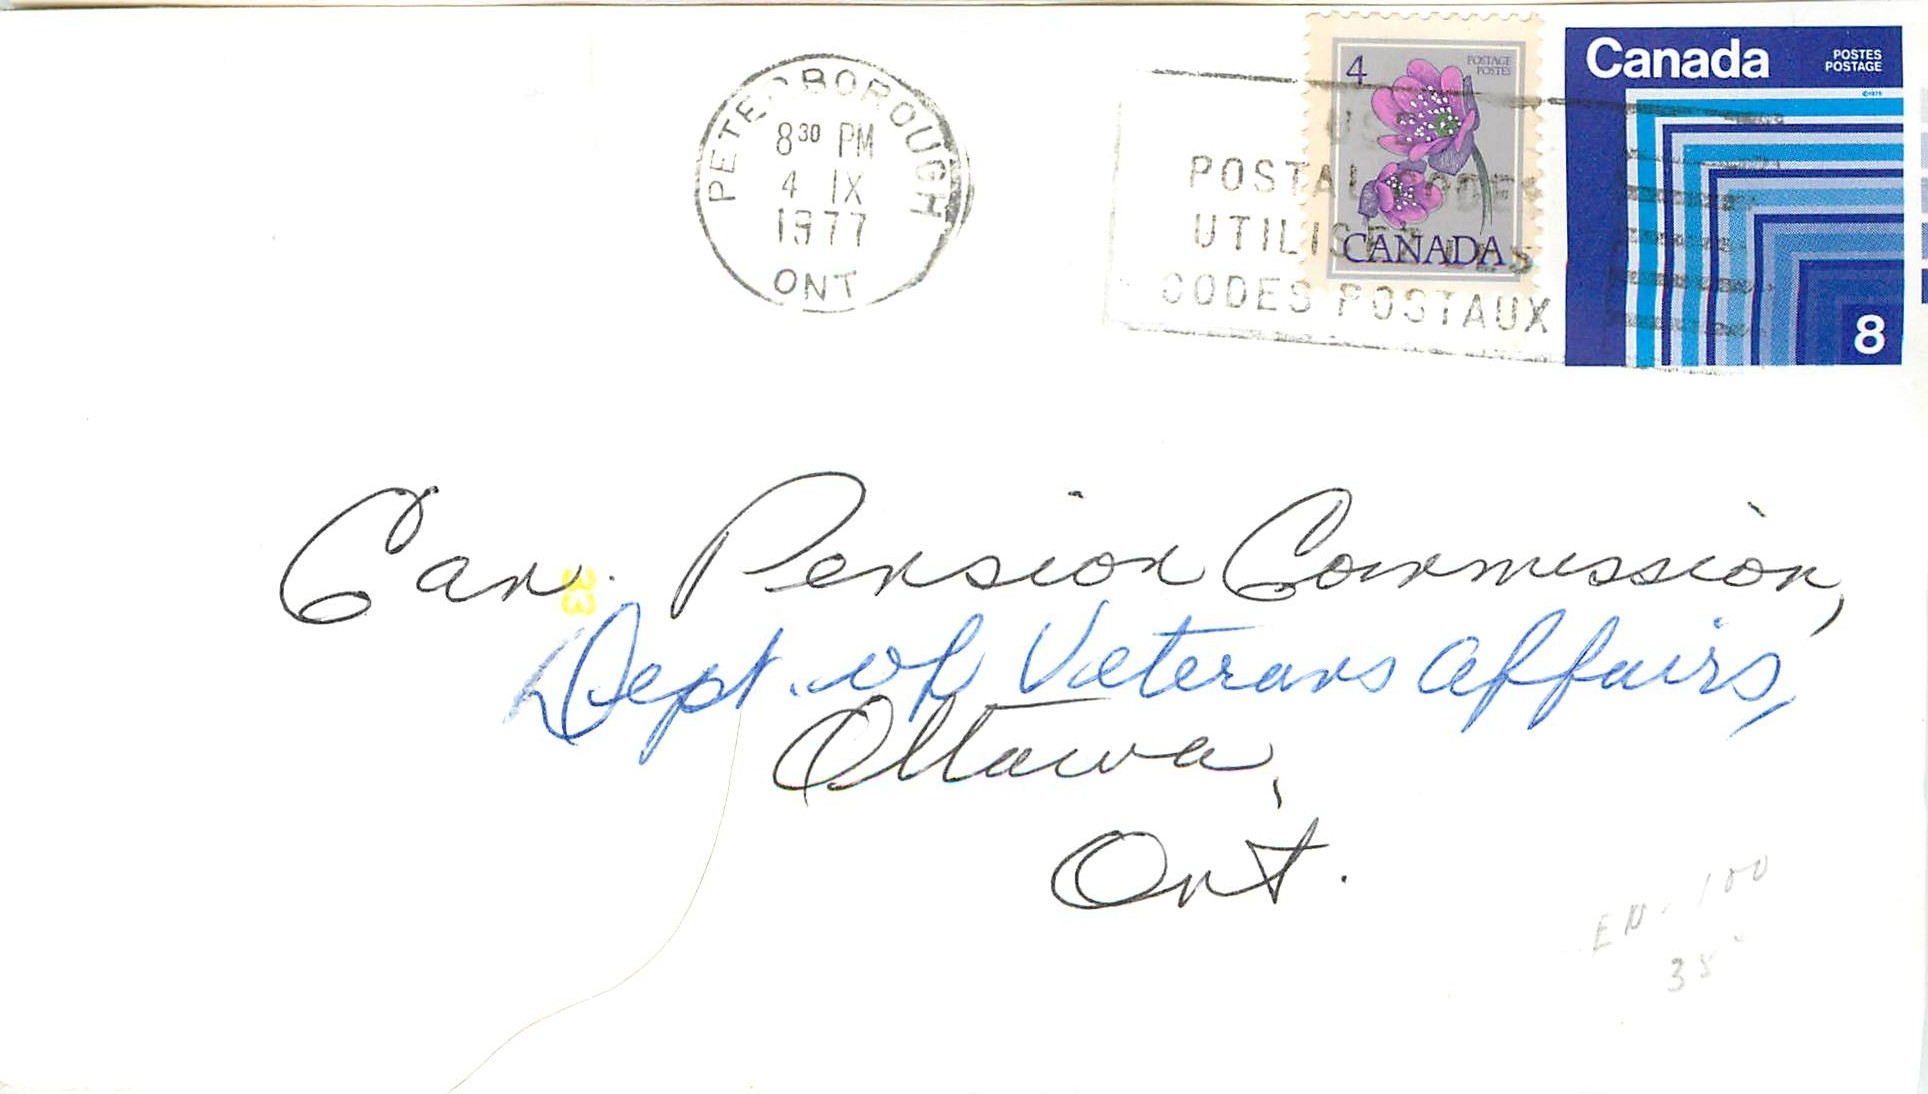 PETERBOROUGH
8 30 PM
4 IX
1977
ONT
USE
POSTAL CODES
UTILISEZ LES
CODES POSTAUX
4
POSTAGE
POSTES
CANADA
Canada
POSTES
POSTAGE
8
Can. Pension Commission,
33
Dept. of Veterans Affairs,
Ottawa,
Ont.
EN. 100